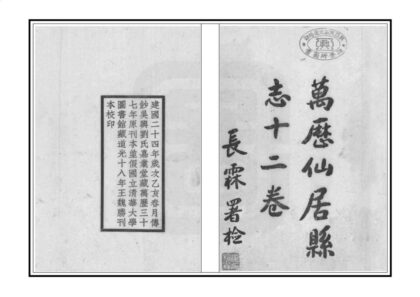 萬歷仙居縣
志十二卷
長霖署檢
建國二十四年歲次乙亥春月傳
鈔吳興劉氏嘉業堂藏萬歷三十
七年原刊本並假國立清華大學
圖書館藏道光十八年王魏勝刊
本校印